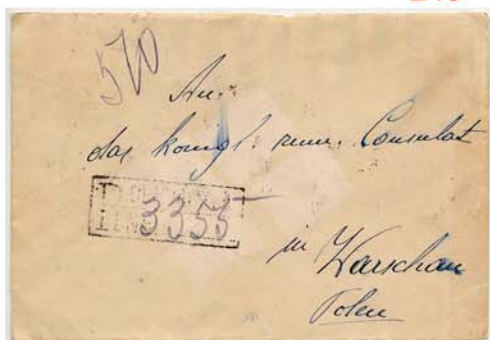 570
An
das königl. rum. Consulat
R
No 3353
in Warschau
Polen